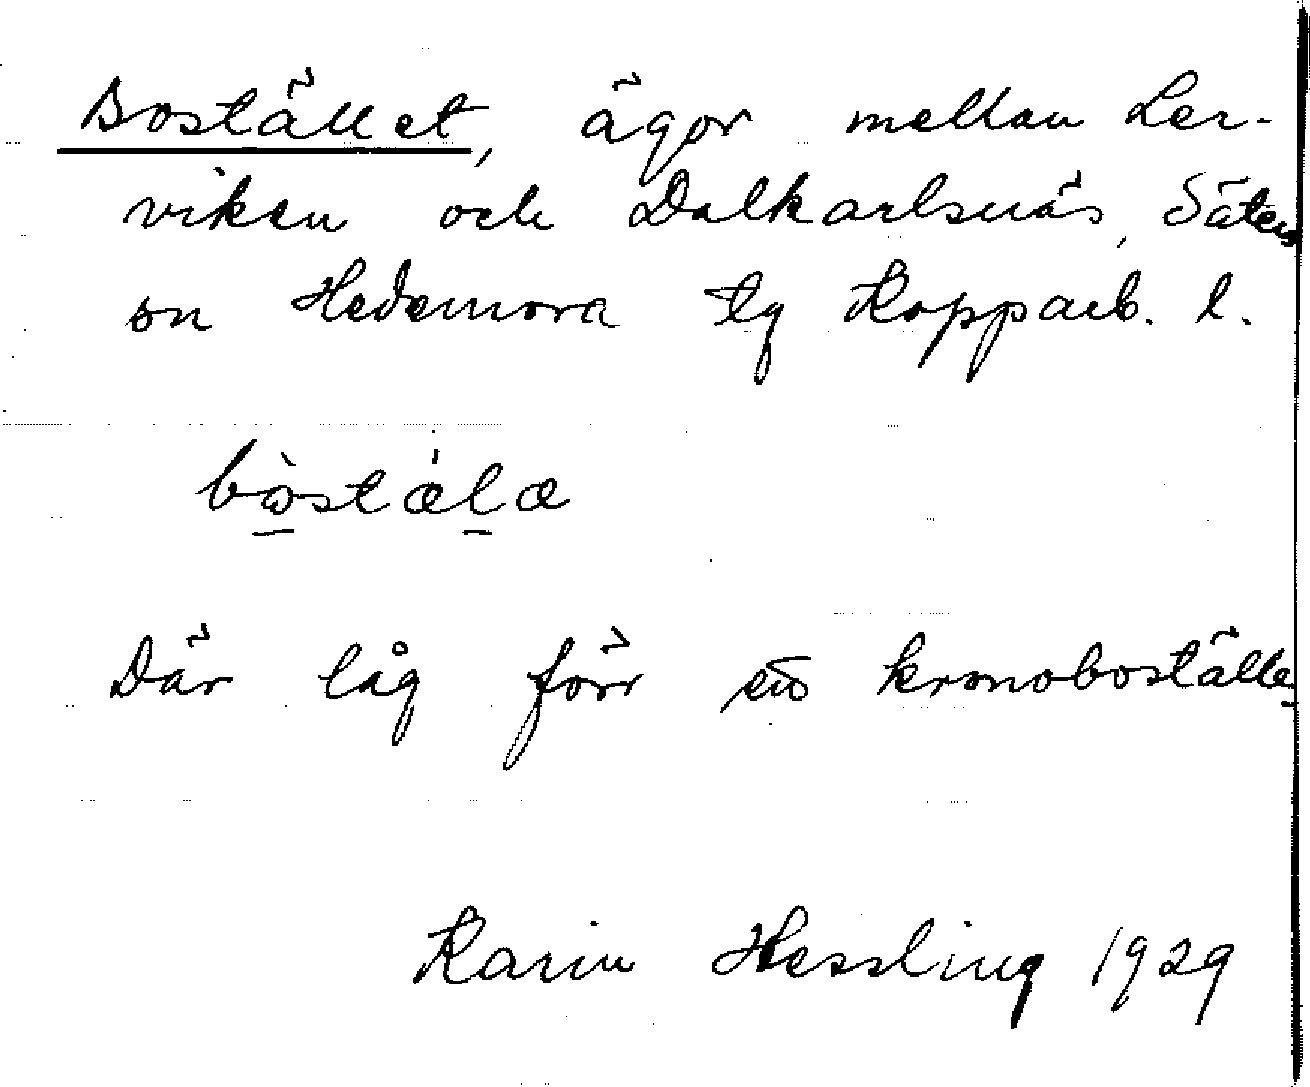 Bostället, ägor mellan Ler-
viken och Dalkarlsnäs, Säters
sn Hedemora tg Kopparb. l.
bòstǽlæ
Där låg förr ett kronoboställe
Karin Hessling 1929